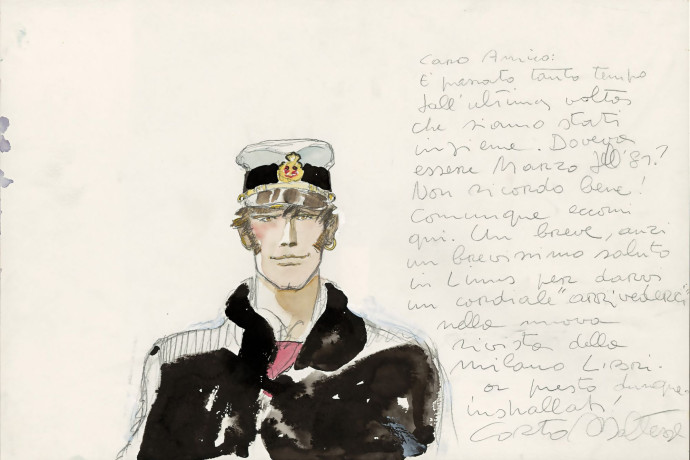 Caro Amico:
È passato tanto tempo
dall'ultima volta
che siamo stati
insieme. Doveva
essere Marzo dell'81!
Non ricordo bene!
Comunque eccomi
qui. Un breve, anzi
un brevissimo saluto
in Linus per darvi
un cordiale "arrivederci"
nella nuova
rivista della
Milano Libri.
presto dunque.
installati!
Corto Maltese